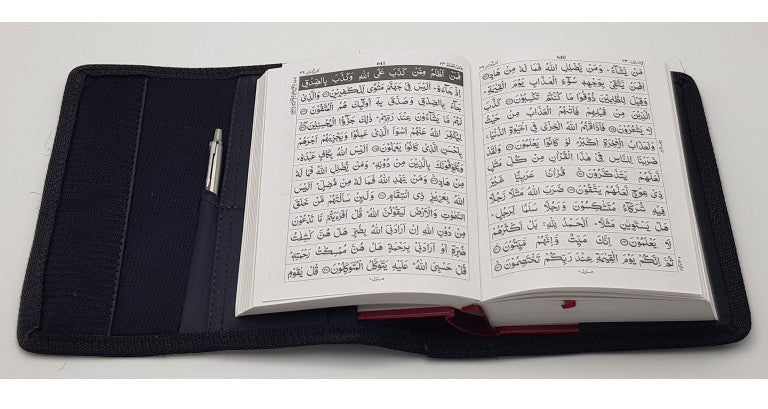 640
مَنْ يَّشَآءُ ؕ وَمَنْ يُّضْلِلِ اللّٰهُ فَمَا لَهٗ مِنْ هَادٍ ۝
اَفَمَنْ يَّتَّقِيْ بِوَجْهِهٖ سُوْٓءَ الْعَذَابِ يَوْمَ الْقِيٰمَةِ ؕ
وَقِيْلَ لِلظّٰلِمِيْنَ ذُوْقُوْا مَا كُنْتُمْ تَكْسِبُوْنَ ۝ كَذَّبَ
الَّذِيْنَ مِنْ قَبْلِهِمْ فَاَتٰىهُمُ الْعَذَابُ مِنْ حَيْثُ
لَا يَشْعُرُوْنَ ۝ فَاَذَاقَهُمُ اللّٰهُ الْخِزْيَ فِي الْحَيٰوةِ الدُّنْيَا ۚ
وَلَعَذَابُ الْاٰخِرَةِ اَكْبَرُ ۘ لَوْ كَانُوْا يَعْلَمُوْنَ ۝ وَلَقَدْ
ضَرَبْنَا لِلنَّاسِ فِيْ هٰذَا الْقُرْاٰنِ مِنْ كُلِّ مَثَلٍ
لَّعَلَّهُمْ يَتَذَكَّرُوْنَ ۝ قُرْاٰنًا عَرَبِيًّا غَيْرَ
ذِيْ عِوَجٍ لَّعَلَّهُمْ يَتَّقُوْنَ ۝ ضَرَبَ اللّٰهُ مَثَلًا رَّجُلًا
فِيْهِ شُرَكَآءُ مُتَشٰكِسُوْنَ وَرَجُلًا سَلَمًا لِّرَجُلٍ ؕ
هَلْ يَسْتَوِيٰنِ مَثَلًا ؕ اَلْحَمْدُ لِلّٰهِ ۚ بَلْ اَكْثَرُهُمْ
لَا يَعْلَمُوْنَ ۝ اِنَّكَ مَيِّتٌ وَّاِنَّهُمْ مَّيِّتُوْنَ ۝
ثُمَّ اِنَّكُمْ يَوْمَ الْقِيٰمَةِ عِنْدَ رَبِّكُمْ تَخْتَصِمُوْنَ ۝
منزل
641
فَمَنْ اَظْلَمُ مِمَّنْ كَذَبَ عَلَى اللّٰهِ وَكَذَّبَ بِالصِّدْقِ
اِذْ جَآءَهٗ ؕ اَلَيْسَ فِيْ جَهَنَّمَ مَثْوًى لِّلْكٰفِرِيْنَ ۝ وَالَّذِيْ
جَآءَ بِالصِّدْقِ وَصَدَّقَ بِهٖٓ اُولٰٓئِكَ هُمُ الْمُتَّقُوْنَ ۝
لَهُمْ مَّا يَشَآءُوْنَ عِنْدَ رَبِّهِمْ ؕ ذٰلِكَ جَزٰٓؤُا الْمُحْسِنِيْنَ ۝
لِيُكَفِّرَ اللّٰهُ عَنْهُمْ اَسْوَاَ الَّذِيْ عَمِلُوْا وَيَجْزِيَهُمْ اَجْرَهُمْ
بِاَحْسَنِ الَّذِيْ كَانُوْا يَعْمَلُوْنَ ۝ اَلَيْسَ اللّٰهُ بِكَافٍ عَبْدَهٗ ؕ
وَيُخَوِّفُوْنَكَ بِالَّذِيْنَ مِنْ دُوْنِهٖ ؕ وَمَنْ يُّضْلِلِ اللّٰهُ فَمَا لَهٗ
مِنْ هَادٍ ۝ وَمَنْ يَّهْدِ اللّٰهُ فَمَا لَهٗ مِنْ مُّضِلٍّ ؕ اَلَيْسَ
اللّٰهُ بِعَزِيْزٍ ذِي انْتِقَامٍ ۝ وَلَئِنْ سَاَلْتَهُمْ مَّنْ خَلَقَ
السَّمٰوٰتِ وَالْاَرْضَ لَيَقُوْلُنَّ اللّٰهُ ؕ قُلْ اَفَرَءَيْتُمْ مَّا تَدْعُوْنَ
مِنْ دُوْنِ اللّٰهِ اِنْ اَرَادَنِيَ اللّٰهُ بِضُرٍّ هَلْ هُنَّ كٰشِفٰتُ
ضُرِّهٖٓ اَوْ اَرَادَنِيْ بِرَحْمَةٍ هَلْ هُنَّ مُمْسِكٰتُ رَحْمَتِهٖ ؕ
قُلْ حَسْبِيَ اللّٰهُ ؕ عَلَيْهِ يَتَوَكَّلُ الْمُتَوَكِّلُوْنَ ۝ قُلْ يٰقَوْمِ
منزل